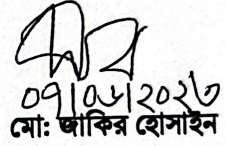 ০৭|০৬|২০২৩
মো: জাকির হোসাইন